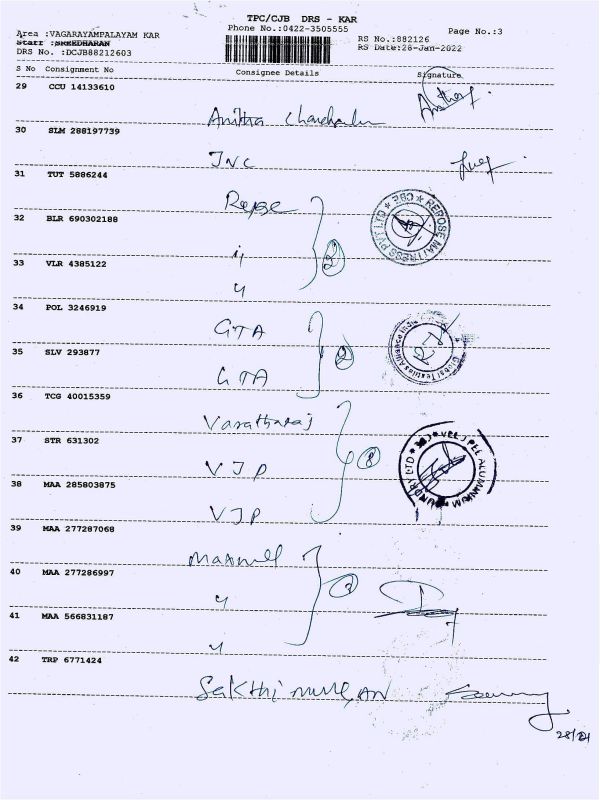 TPC/CJB DRS - KAR
Area :VAGARAYAMPALAYAM KAR
Phone No.:0422-3505555
Page No.:3
Staff :SREEDHARAN
RS No.:882126
DRS No. :DCJB88212603
RS Date:28-Jan-2022
S No Consignment No Consignee Details Signature
29 CCU 14133610
Anitha
30 SLM 288197739
JNC
31 TUT 5886244
Repose
32 BLR 690302188
"
33 VLR 4385122
"
34 POL 3246919
GTA
35 SLV 293877
GTA
36 TCG 40015359
Varatharaj
37 STR 631302
VJP
38 MAA 285803875
VJP
39 MAA 277287068
Maxwell
40 MAA 277286997
"
41 MAA 566831187
"
42 TRP 6771424
Sakthi murugan
REPOSE MATTRESS PVT LTD
Global Textiles Alliance India
ALUMINIUM